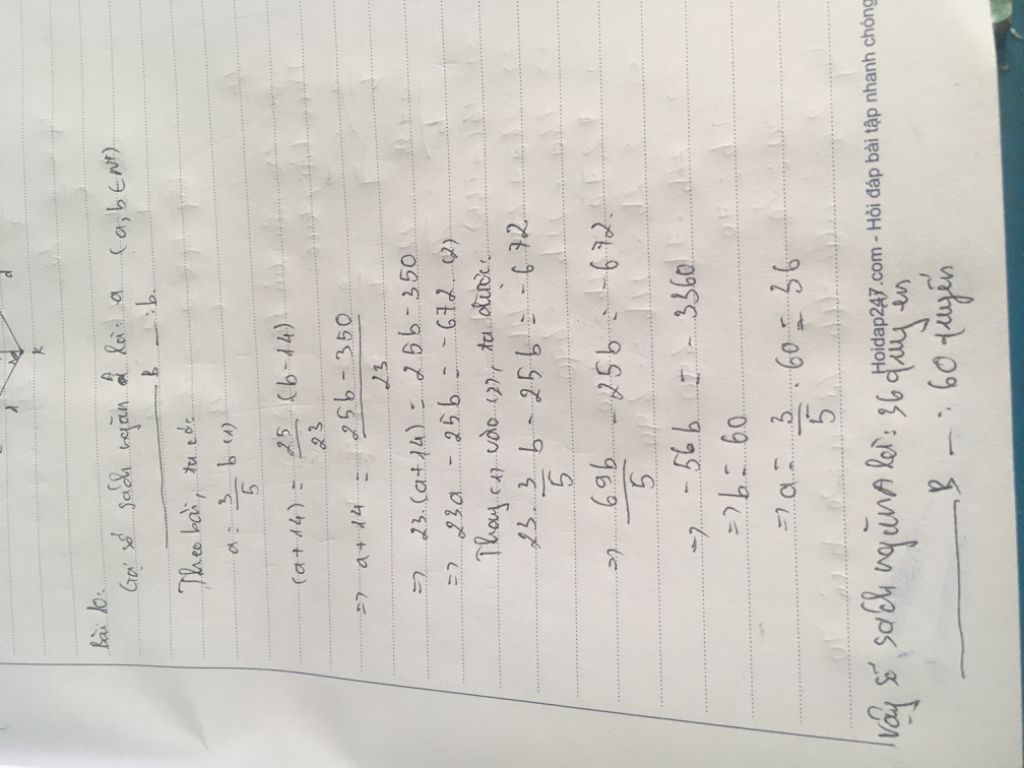 Bài 10:
Gọi số sách ngăn A là: a (a, b ∈ N*)
B — : b.
Theo bài, ta có:
a = 3/5 b (1)
(a+14) = 25/23 (b-14)
=> a+14 = (25b - 350)/23
=> 23.(a+14) = 25b - 350
=> 23a - 25b = -672 (2)
Thay (1) vào (2), ta được:
23. 3/5 b - 25b = -672
=> 69b/5 - 25b = -672
=> -56b = -3360
=> b = 60
=> a = 3/5 . 60 = 36
Hoidap247.com - Hỏi đáp bài tập nhanh chóng
Vậy số sách ngăn A là: 36 quyển
B — : 60 quyển
A
K